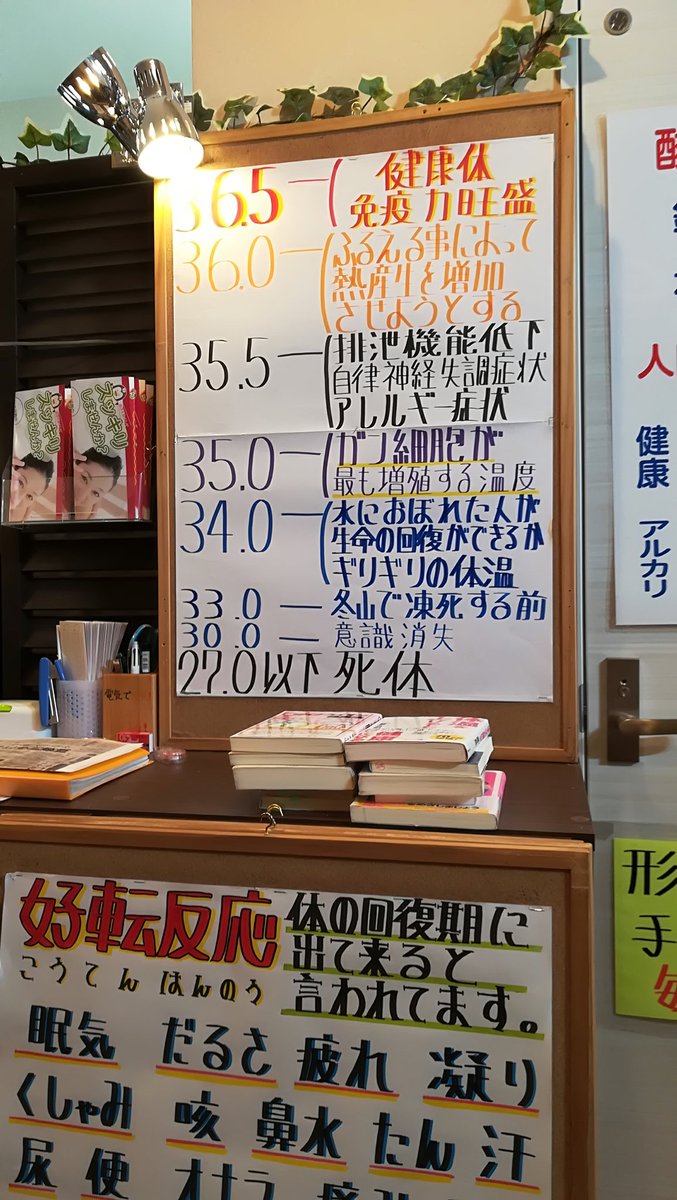 36.5 ― 健康体
免疫力旺盛
36.0 ― ふるえる事によって
熱産生を増加
させようとする
35.5 ― 排泄機能低下
自律神経失調症状
アレルギー症状
35.0 ― ガン細胞が
最も増殖する温度
34.0 ― 水におぼれた人が
生命の回復ができるか
ギリギリの体温
33.0 ― 冬山で凍死する前
30.0 ― 意識消失
27.0以下 死体
人
健康 アルカリ
電気で
好転反応
こうてんはんのう
体の回復期に
出て来ると
言われてます。
眠気 だるさ 疲れ 凝り
くしゃみ 咳 鼻水 たん 汗
尿 便 オナラ
形
手